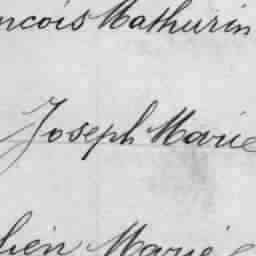 ncois Mathurin
Joseph Marie
lien Marie